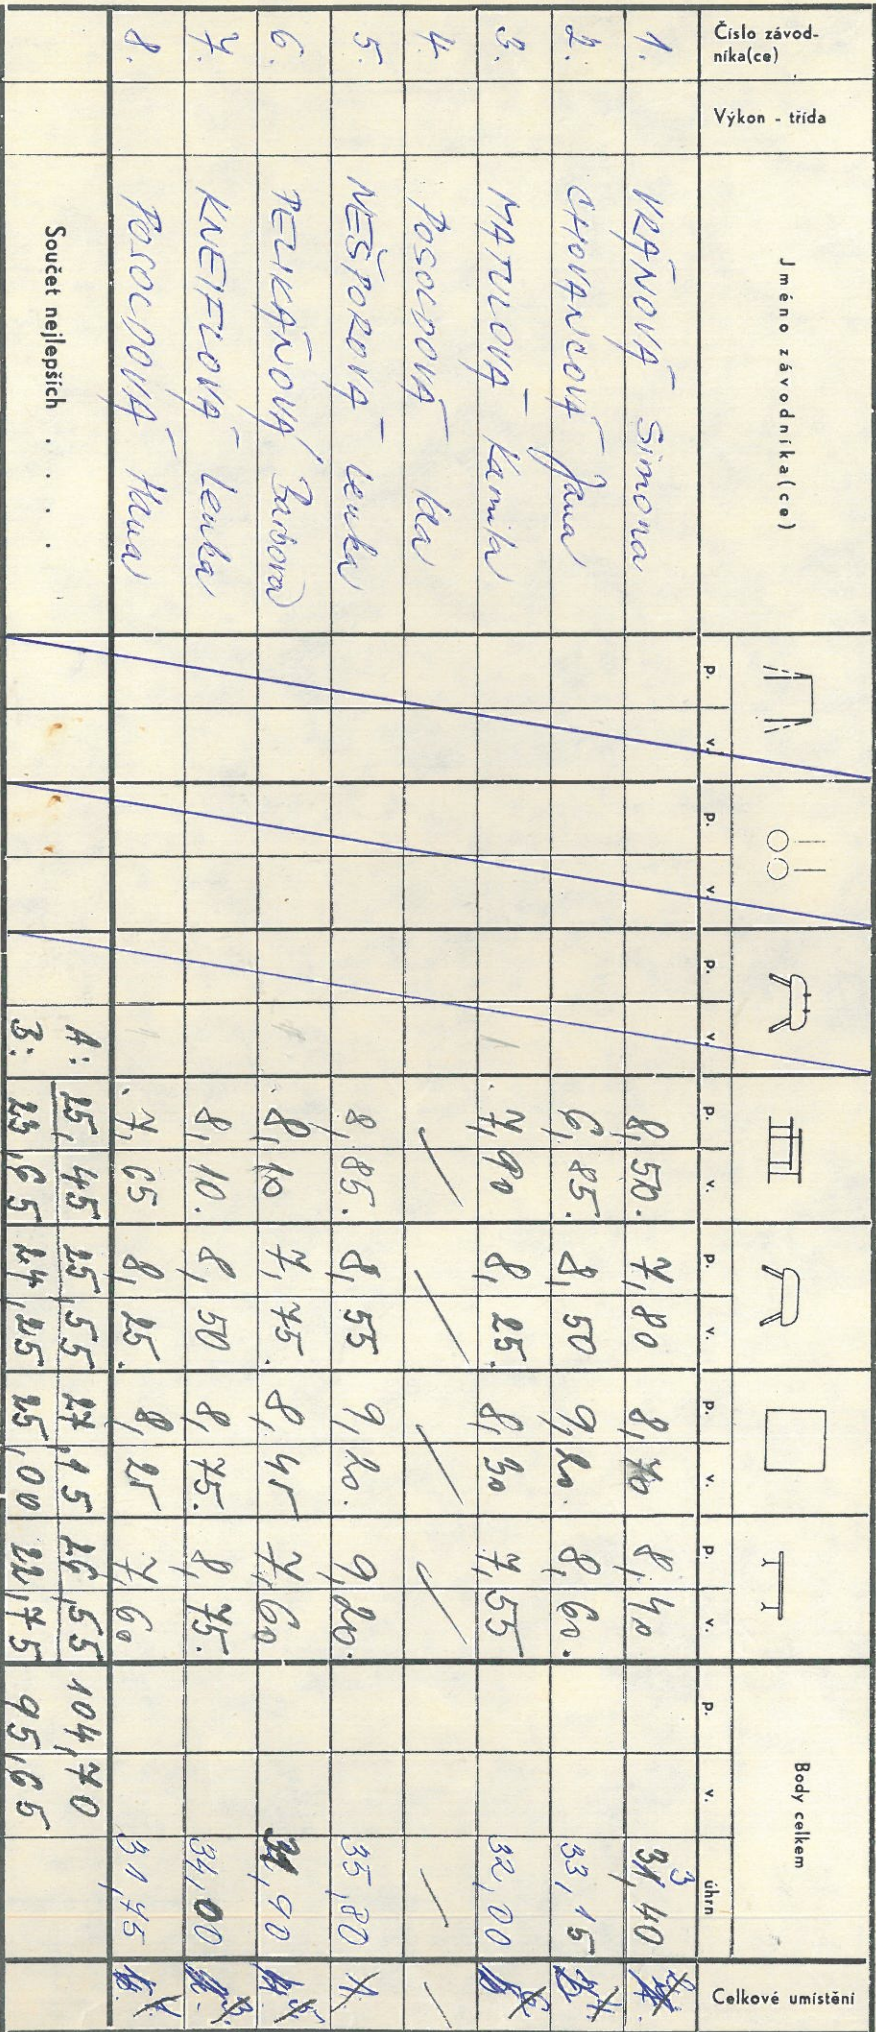 Číslo závod-
níka(ce)
Výkon - třída
Jméno závodníka(ce)
Body celkem
Celkové umístění
p. v. p. v. p. v. p. v. p. v. p. v. p. v. p. v. úhrn
1. VRÁŇOVÁ Simona 8,50. 7,80 8,70 8,40 3 31,40
2. CHOVANCOVÁ Jana 6,85. 8,50 9,20. 8,60. 33,15
3. MATULOVÁ Kamila 7,90 8,25. 8,30 7,55 32,00
4. POSOLDOVÁ Ida
5. NEŠPOROVÁ Lenka 8,85. 8,55 9,20. 9,20. 35,80 1.
6. PELIKÁNOVÁ Barbora 8,10 7,75. 8,45 7,60 31,90
7. KNEIFLOVÁ Lenka 8,10. 8,50 8,75. 8,75. 34,00
8. POSOLDOVÁ Hana 7,65 8,25. 8,25 7,60 31,75
Součet nejlepších . . . .
A: 25,45 25,55 27,15 26,55 104,70
B: 23,65 24,25 25,00 22,75 95,65